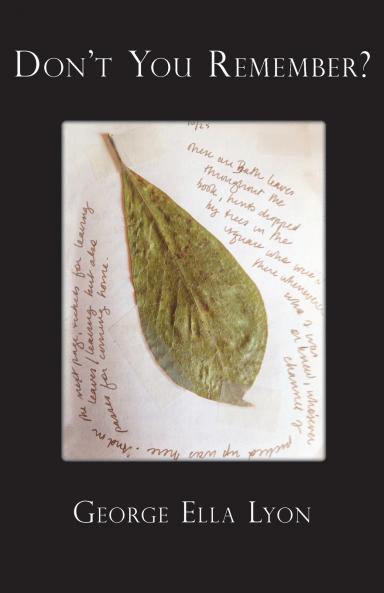 DON'T YOU REMEMBER?
10/25
These are Bath leaves
throughout the
book, hints dropped
by trees in the
square who were
there whenever
who I was
or knew, whoever
channel I
picked up was here. And on
the next page, tickets for leaving
the leaves / leaving but also
passes for coming home.
GEORGE ELLA LYON